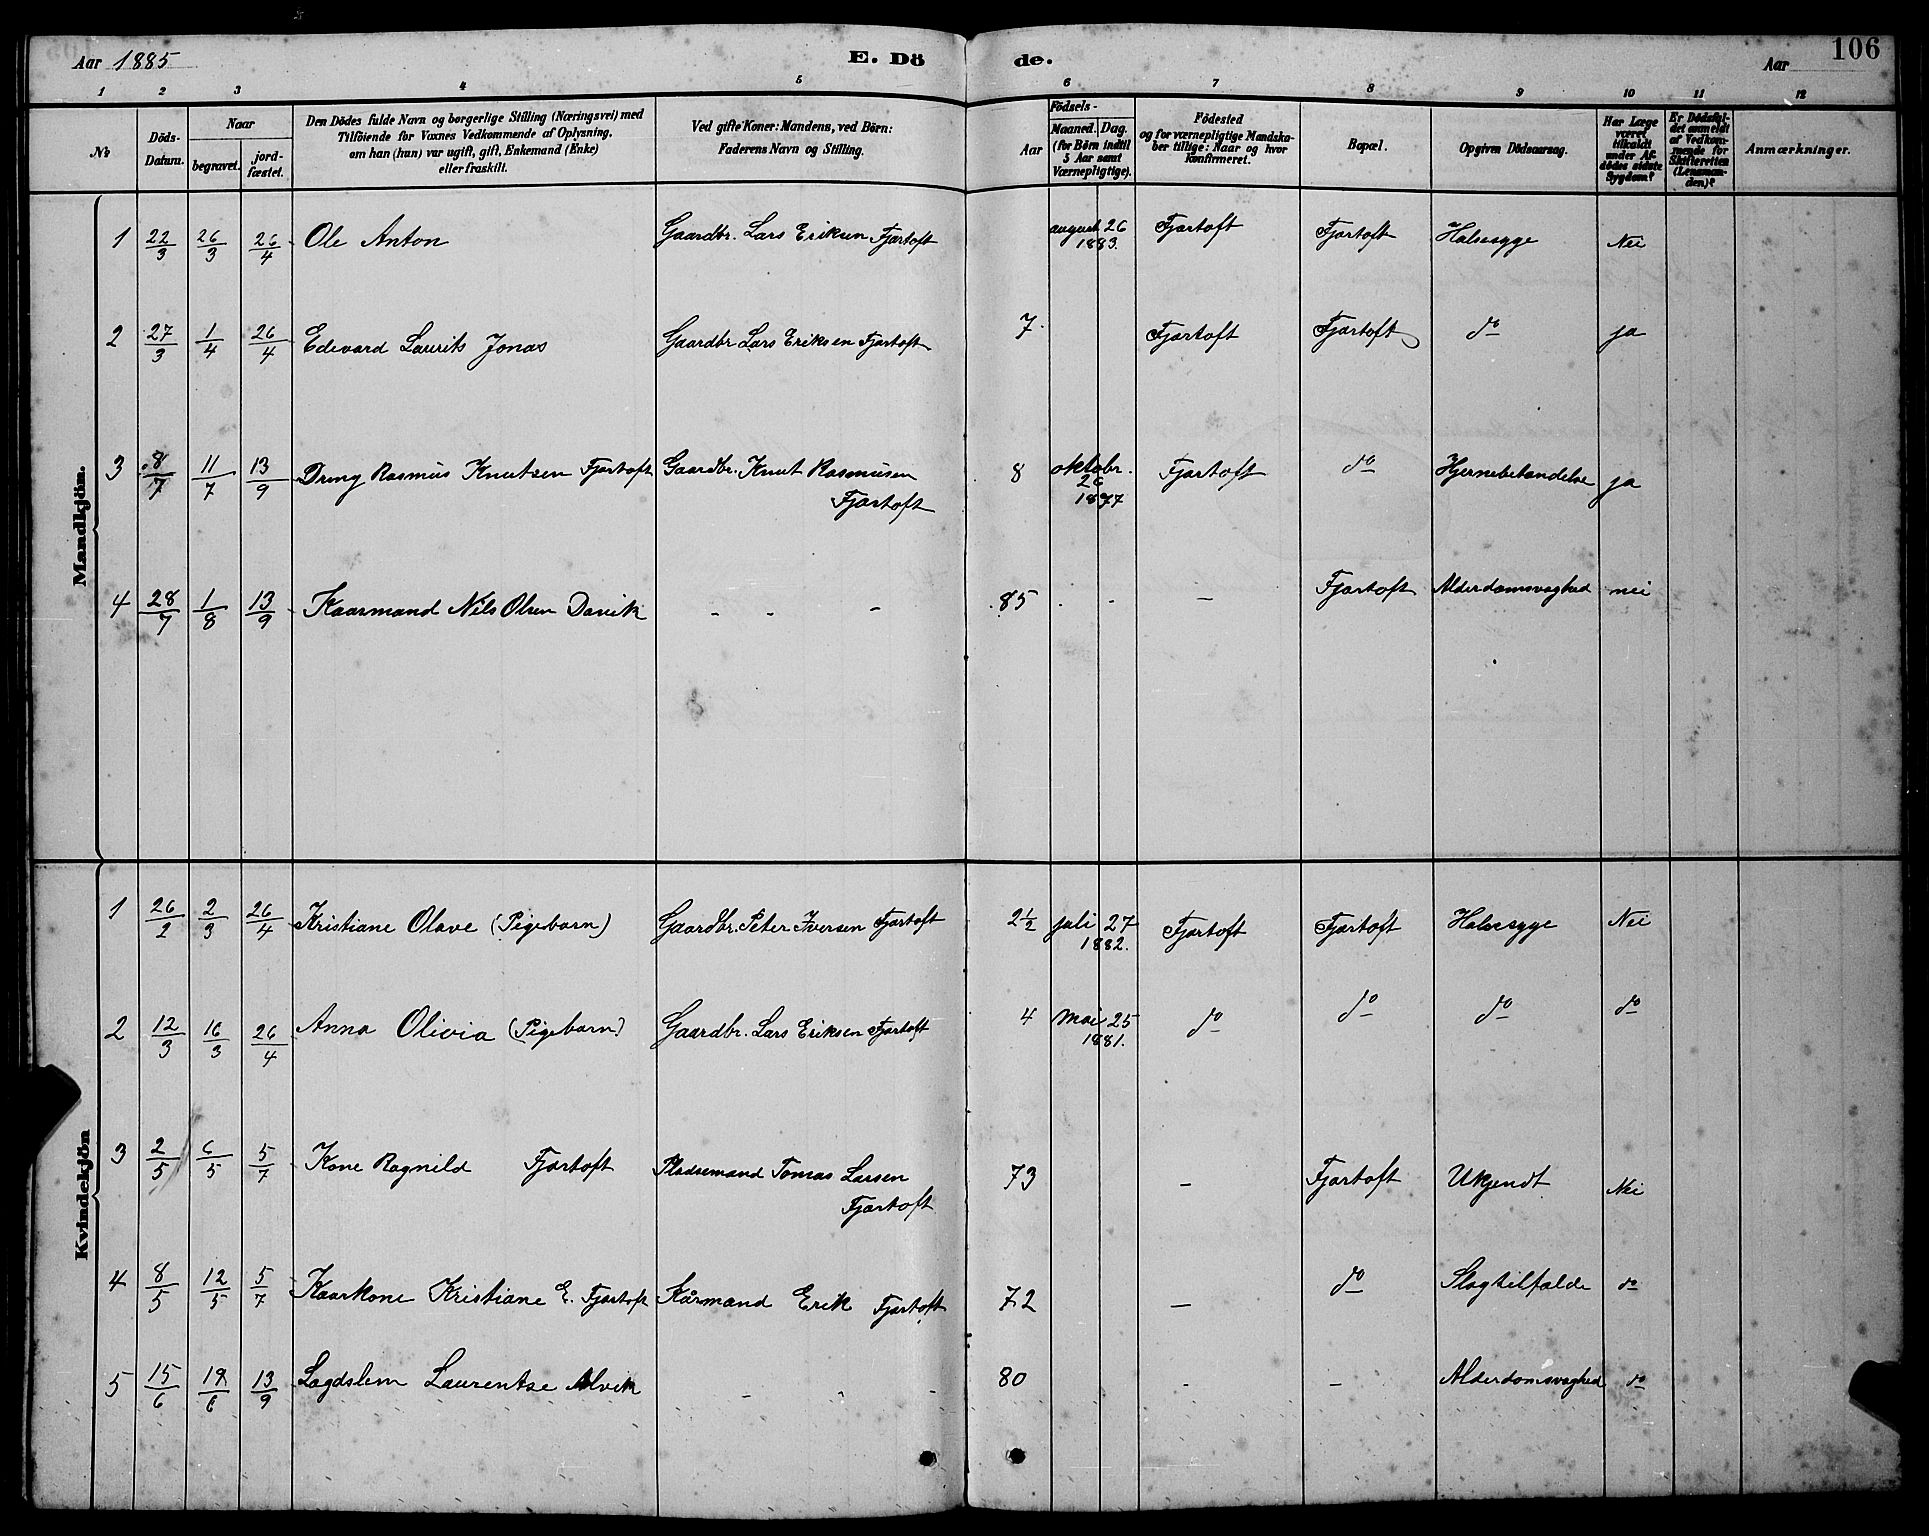 Aar 1885
E. Dö
de.
Aar
106
1 2 3 4 5 6 7 8 9 10 11 12
No
Döds-Datum.
Naar
begravet.
jord-fæstet.
Den Dödes fulde Navn og borgerlige Stilling (Næringsvei) med
Tilföiende for Voxnes Vedkommende af Oplysning,
om han (hun) var ugift, gift, Enkemand (Enke)
eller fraskilt.
Ved gifte Koner: Mandens, ved Börn:
Faderens Navn og Stilling.
Aar
Födsels-
Maaned. Dag.
(for Börn indtil
5 Aar samt
Værnepligtige).
Födested
og for værnepligtige Mandska-
ber tillige: Naar og hvor
konfirmeret.
Bopæl.
Opgiven Dödsaarsag.
Har Læge
været
tilkaldt
under Af-
dödes sidste
Sygdom?
Er Dödsfal-
det anmeldt
af Vedkom-
mende for
Skifteretten
(Lensman-
den)?
Anmærkninger.
Mandkjön.
1 22/3 26/3 26/4 Ole Anton Gaardbr. Lars Eriksen Fjartoft august 26 1883. Fjartoft Fjartoft Halssyge Nei
2 27/3 1/4 26/4 Edevard Laurits Jonas Gaardbr Lars Eriksen Fjartoft 7. Fjartoft Fjartoft do ja
3 8/7 11/7 13/9 Dreng Rasmus Knutsen Fjartoft Gaardbr. Knut Rasmusen
Fjartoft 8 oktobr. 26 1877 Fjartoft do Hjernebetændelse ja
4 28/7 1/8 13/9 Kaarmand Nils Olsen Davik - - - 85 . - — Fjartoft Alderdomsvaghed nei
Kvindekjön
1 26/2 2/3 26/4 Kristiane Olave (Pigebarn) Gaardbr. Peter Iversen Fjartoft 2½ juli 27 1882. Fjartoft Fjartoft Halssyge Nei
2 12/3 16/3 26/4 Anna Olivia (Pigebarn) Gaardbr. Lars Eriksen Fjartoft 4 Mai 25 1881. do do do do
3 2/5 6/5 5/7 Kone Ragnild Fjartoft Pladsemand Tomas Larsen
Fjartoft 73 — Fjartoft Ukjendt Nei
4 8/5 12/5 5/7 Kaarkone Kristiane E. Fjartoft Kårmand Erik Fjartoft 72 — do Slagtilfælde do
5 15/6 19/6 13/9 Lægdslem Laurentse Alvik - - - 80 - — Alderdomsvaghed do